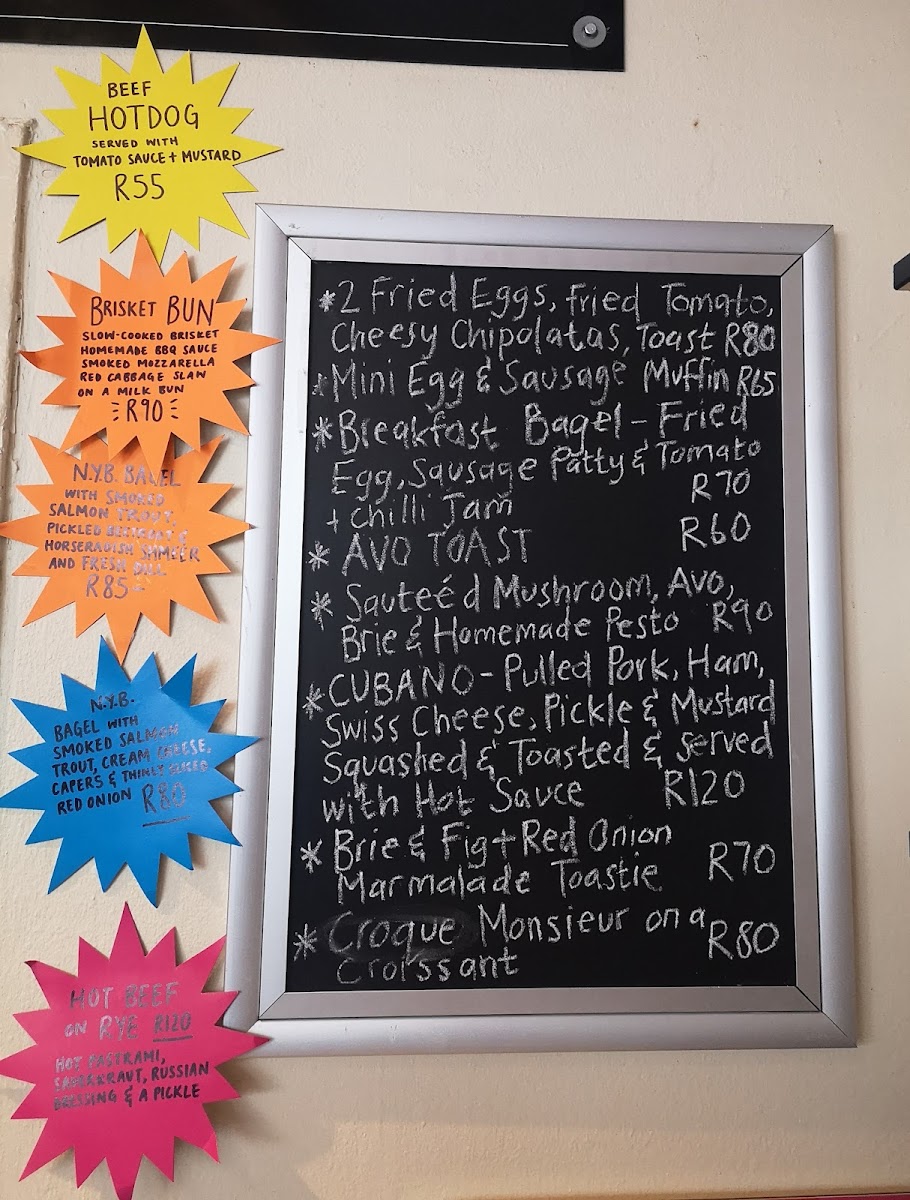 BEEF
HOTDOG
SERVED WITH
TOMATO SAUCE + MUSTARD
R55
BRISKET BUN
SLOW-COOKED BRISKET
HOMEMADE BBQ SAUCE
SMOKED MOZZARELLA
RED CABBAGE SLAW
ON A MILK BUN
R90
N.Y.B. BAGEL
WITH SMOKED
SALMON TROUT,
PICKLED BEETROOT &
HORSERADISH SHMEER
AND FRESH DILL
R85-
N.Y.B.
BAGEL WITH
SMOKED SALMON
TROUT, CREAM CHEESE,
CAPERS & THINLY SLICED
RED ONION R80
HOT BEEF
ON RYE R120
HOT PASTRAMI,
SAUERKRAUT, RUSSIAN
DRESSING & A PICKLE
*2 Fried Eggs, fried Tomato,
Cheesy Chipolatas, Toast R80
*Mini Egg & Sausage Muffin R65
*Breakfast Bagel - Fried
Egg, Sausage Patty & Tomato
+ Chilli Jam R70
* AVO TOAST R60
* Sauteéd Mushroom, Avo,
Brie & Homemade Pesto R90
*CUBANO - Pulled Pork, Ham,
Swiss Cheese, Pickle & Mustard
Squashed & Toasted & served
with Hot Sauce R120
* Brie & Fig + Red Onion
Marmalade Toastie R70
* Croque Monsieur on a
Croissant R80